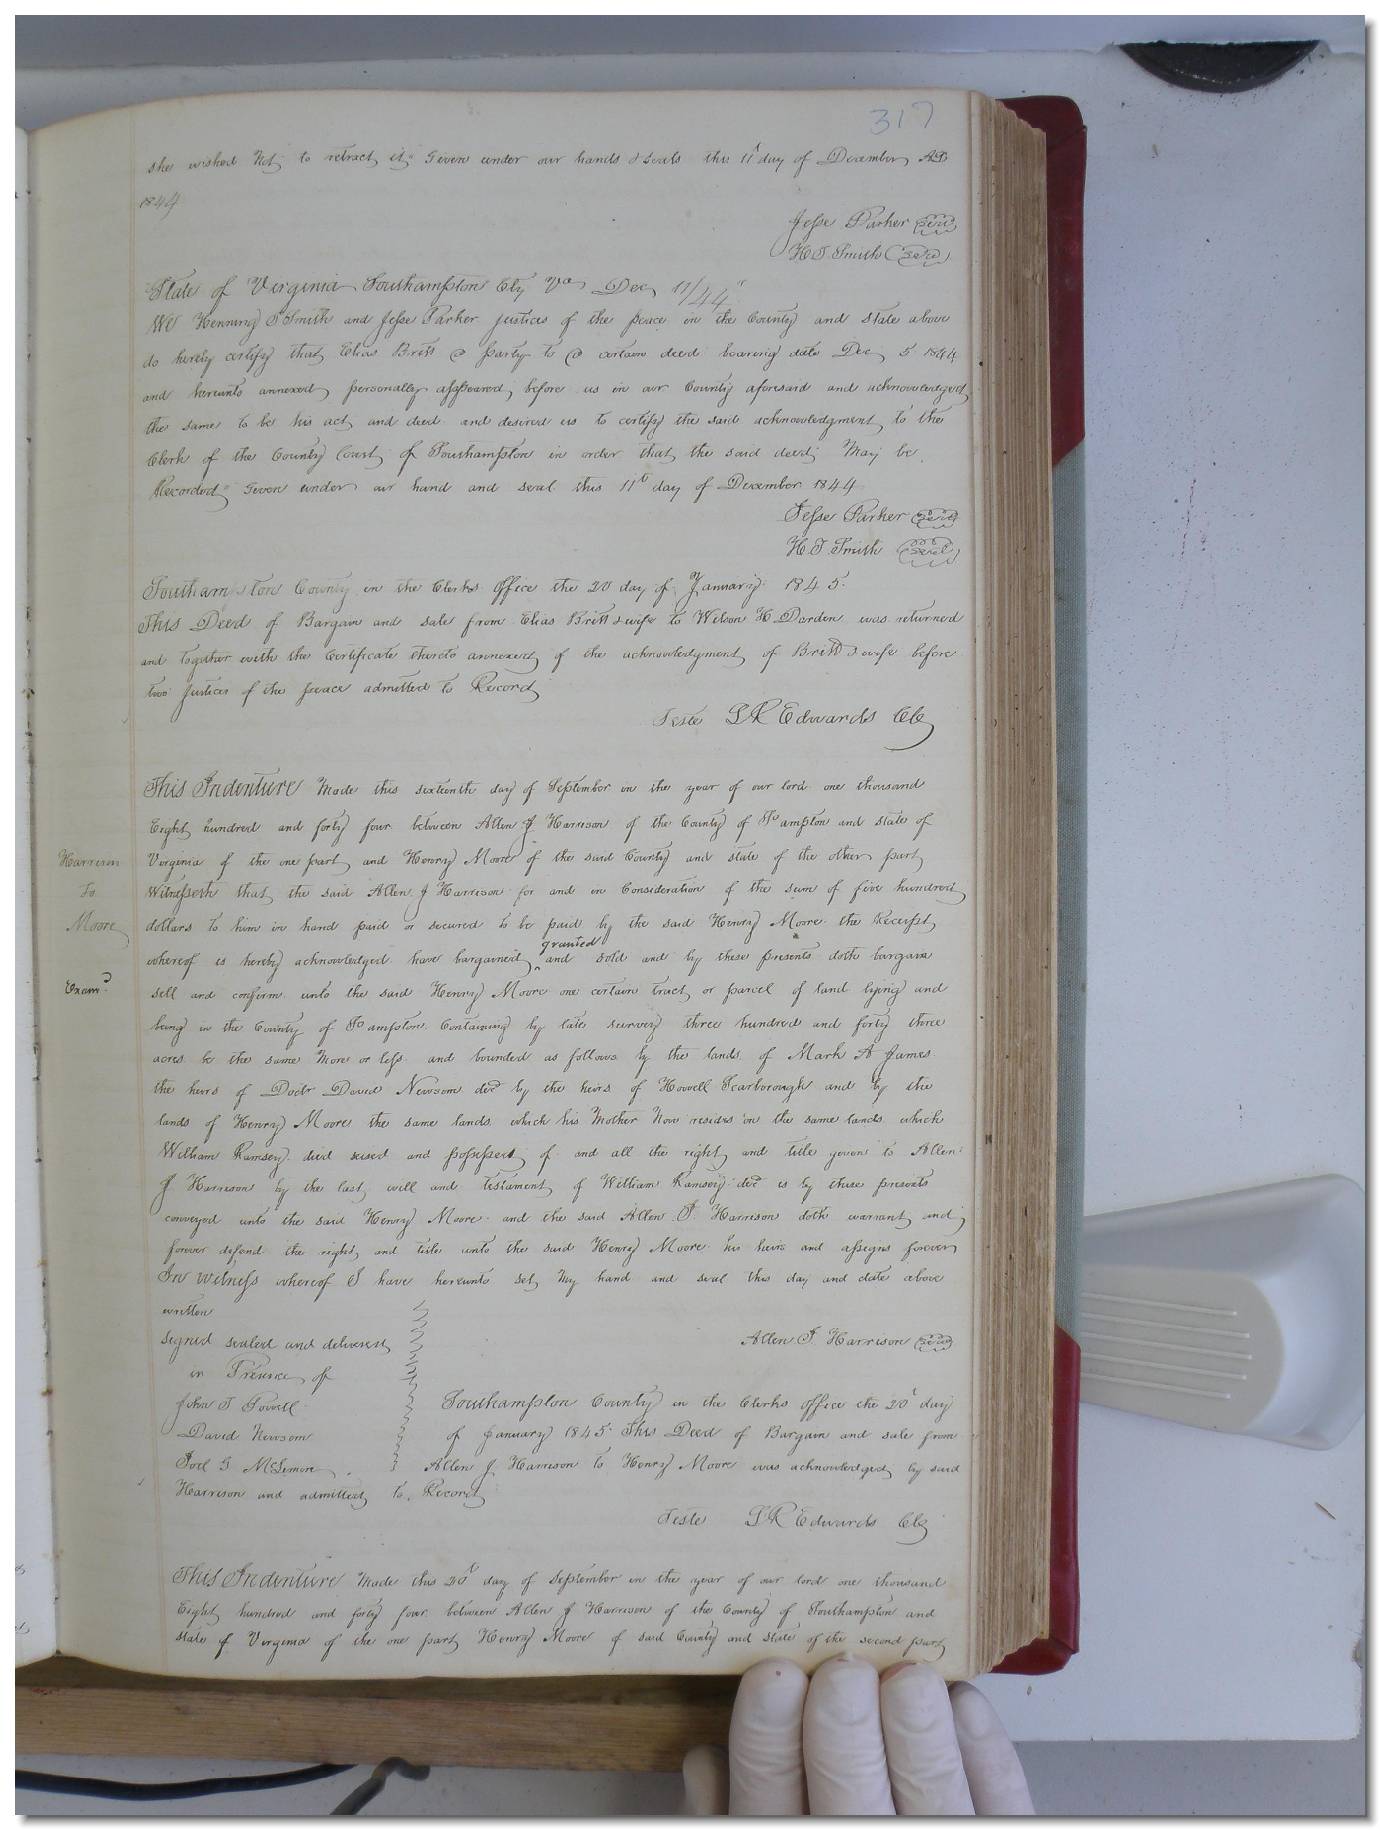 317
she wished Not to retract it" Given under our hands & seals this 11th day of December AD
1844
Jesse Parker seal
H. T. Smith seal
State of Virginia Southampton Cty Va Dec 11/44
We Henning T Smith and Jesse Parker justices of the peace in the County and state above
do hereby certify that Elias Britt a party to a certain deed bearing date Dec 5 1844
and hereunto annexed personally appeared before us in our County aforesaid and acknowledged
the same to be his act and deed and desired us to certify the said acknowledgment to the
Clerk of the County Court of Southampton in order that the said deed May be
Recorded" Given under our hand and seal this 11th day of December 1844
Jesse Parker seal
H. T. Smith seal
Southampton County in the Clerks Office the 20 day of January 1845.
This Deed of Bargain and sale from Elias Britt & wife to Wilson H Darden was returned
and together with the Certificate thereto annexed of the acknowledgment of Britt & wife before
two Justices of the peace admitted to Record
Teste L R Edwards Clk
This Indenture Made this sixteenth day of September in the year of our lord one thousand
Eight hundred and forty four between Allen J Harrison of the County of So ampton and state of
Harrison
To
Moore
Virginia of the one part and Henry Moore of the said County and state of the other part
Witnesseth that the said Allen J Harrison for and in Consideration of the sum of five hundred
dollars to him in hand paid or secured to be paid by the said Henry Moore the Receipt
whereof is hereby acknowledged have bargained granted and sold and by these presents doth bargain
Examd
sell and confirm unto the said Henry Moore one certain tract or parcel of land lying and
being in the County of So ampton Containing by late survey three hundred and forty three
acres be the same More or less and bounded as follows by the lands of Mark A James
the heirs of Doctr David Newsom decd by the heirs of Howell Scarborough and by the
lands of Henry Moore the same lands which his Mother Now resides on the same lands which
William Ramsey died seised and possessed of and all the right and title given to Allen
J Harrison by the last will and testament of William Ramsey decd is by these presents
conveyed unto the said Henry Moore and the said Allen J. Harrison doth warrant and
forever defend the right and title unto the said Henry Moore his heirs and assigns forever
In witness whereof I have hereunto set My hand and seal this day and date above
written
signed sealed and delivered
in Presence of
John T Powell
David Newsom
Joel G McLemore
Allen J. Harrison seal
Southampton County in the Clerks office the 20th day
of January 1845 This Deed of Bargain and sale from
Allen J Harrison to Henry Moore was acknowledged by said
Harrison and admitted to Record
Teste L R Edwards Clk
This Indenture Made this 20th day of September in the year of our lord one thousand
Eight hundred and forty four between Allen J Harrison of the County of Southampton and
state of Virginia of the one part Henry Moore of said County and state of the second part